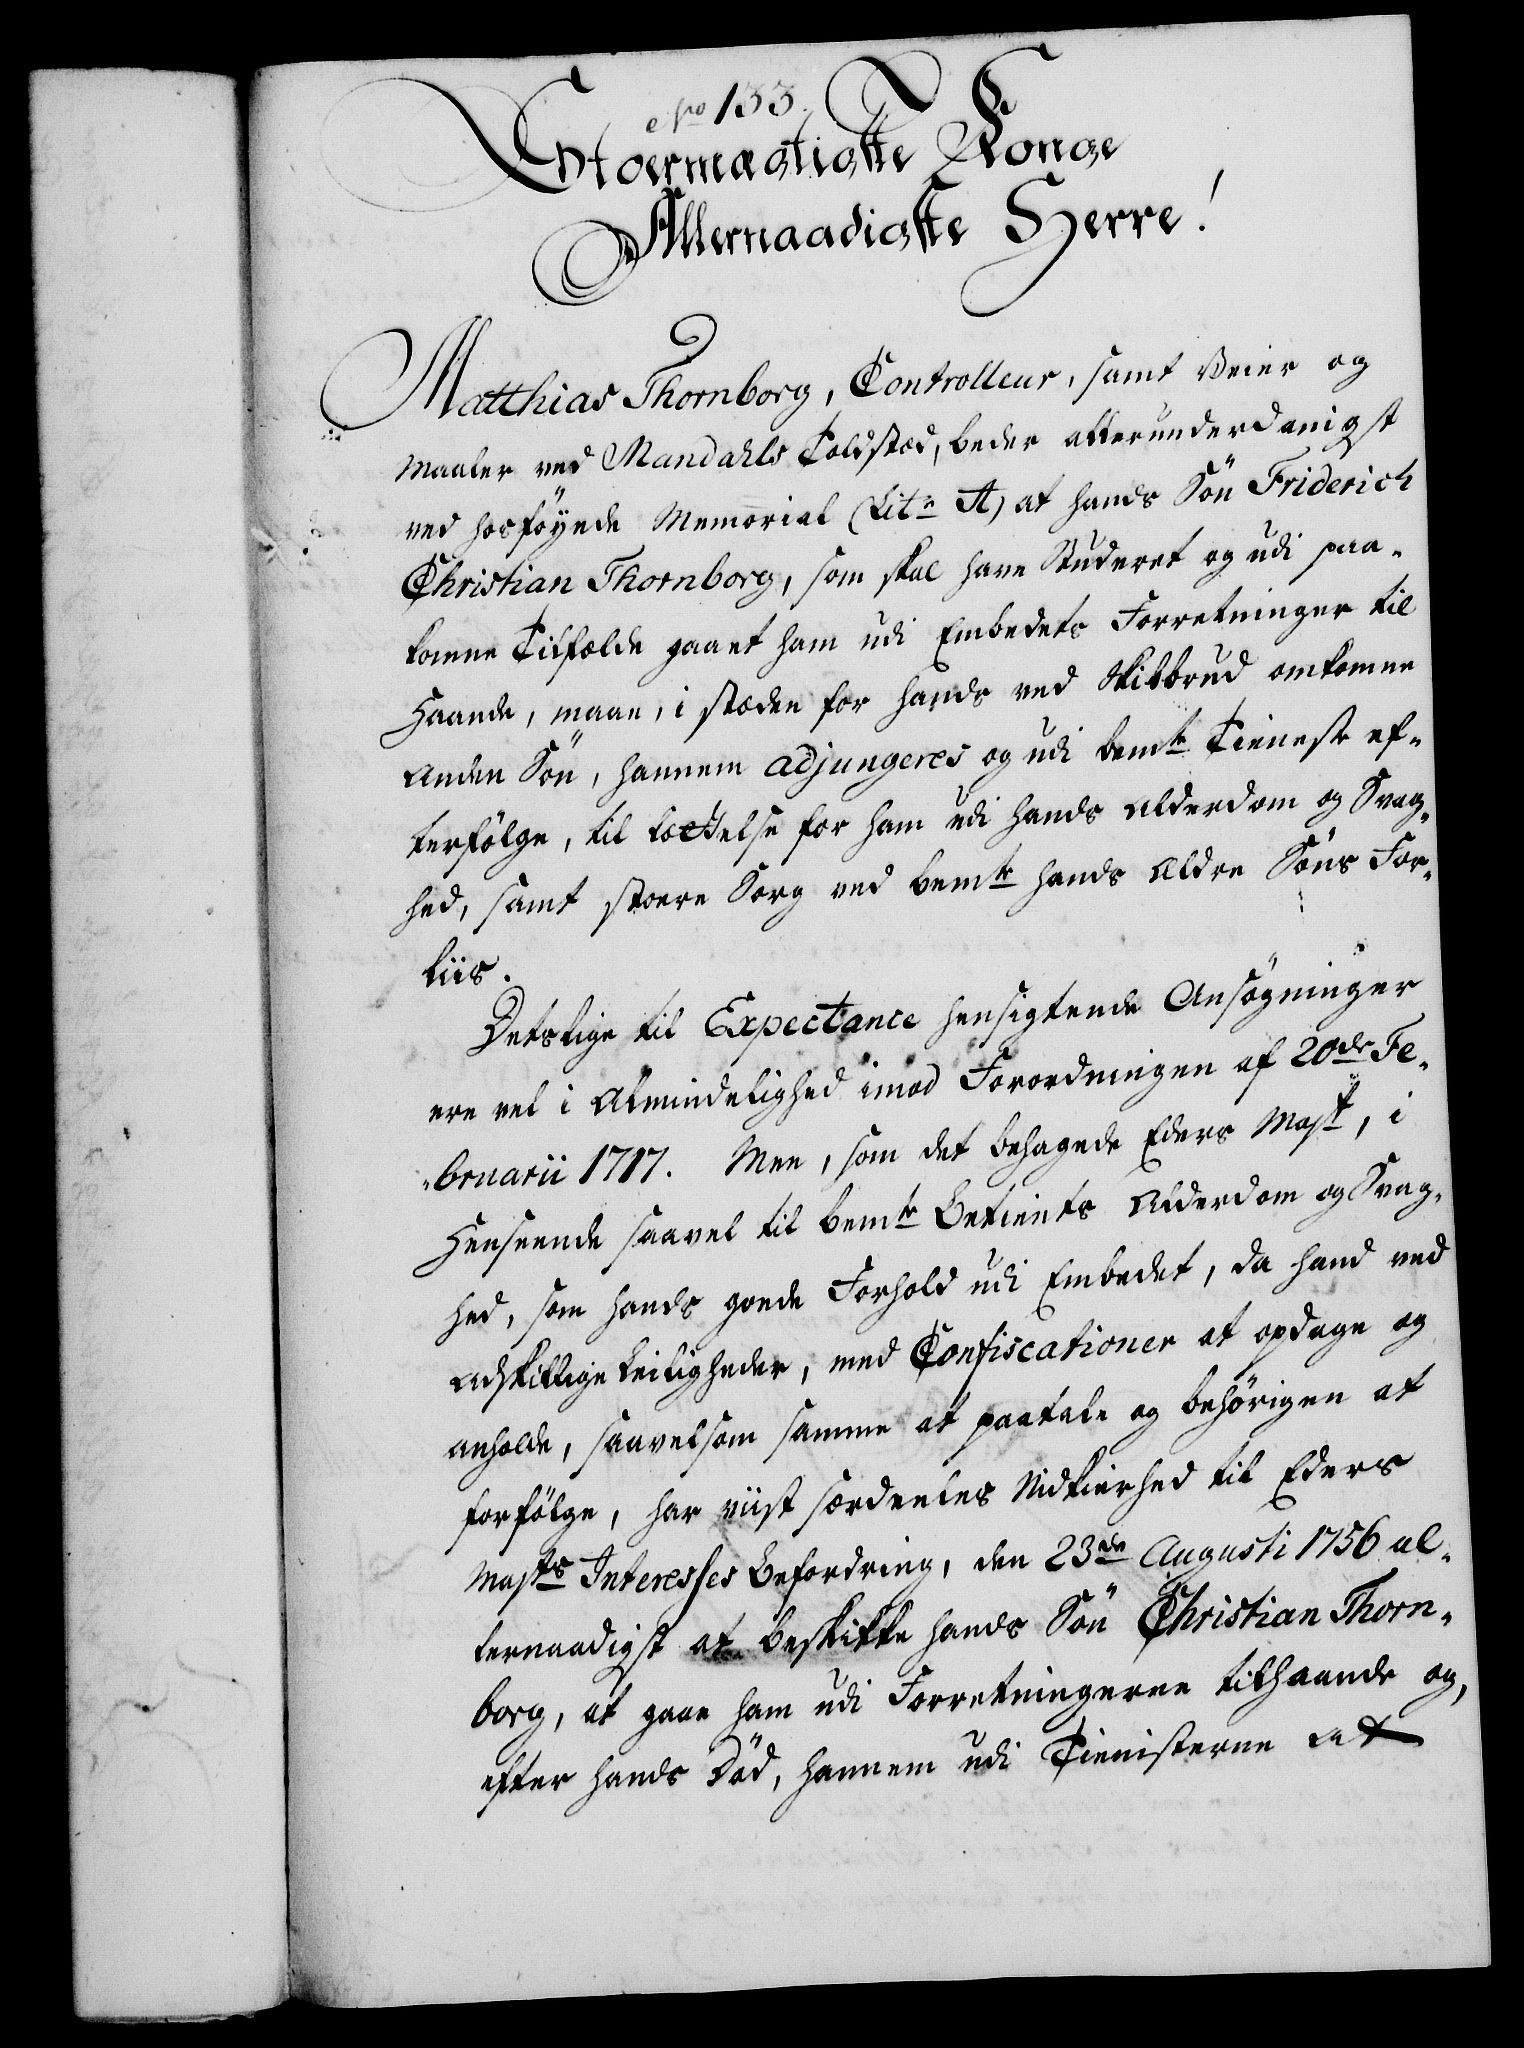 No 133.
Stoermægtigste Konge
Allernaadigste Herre!
Matthias Thornborg, Controlleur, samt Veier og
Maaler ved Mandahls Toldsted, beder allerunderdanigst
ved hosföyede Memorial (Litr A) at hands Sön Friderich
Christian Thornborg, som skal have Studeret og udi paa-
komne Tilfælde gaaet ham udi Embedets Forretninger til
Haande, maae, i stæden for hands ved Skibbrud omkomne
Anden Sön, hannem adjungeres og udi bemte Tieneste ef-
terfölge, til lættelse for ham udi hands Alderdom og Svag-
hed, samt stoere Sorg ved bemte hands Ældre Söns For-
liis.
Detslige til Expectance hensigtende Ansögninger
ere vel i Almindelighed imod Forordningen af 20de Fe-
bruarii 1717. Men, som det behagede Eders Mayt, i
Henseende saavel til bemte Betients Alderdom og Svag-
hed, som hands goede Forhold udi Embedet, da hand ved
adskillige Leiligheder, med Confiscationer at opdage og
anholde, saavelsom samme at paatale og behörigen at
forfölge, har viist særdeeles Nidkierhed til Eders
Mayts Interesses Befordring, den 23de Augusti 1756 al-
lernaadigst at beskikke hands Sön Christian Thorn-
borg, at gaae ham udi Forretningerne tilhaande og,
efter hands Död, hannem udi Tienisterne at